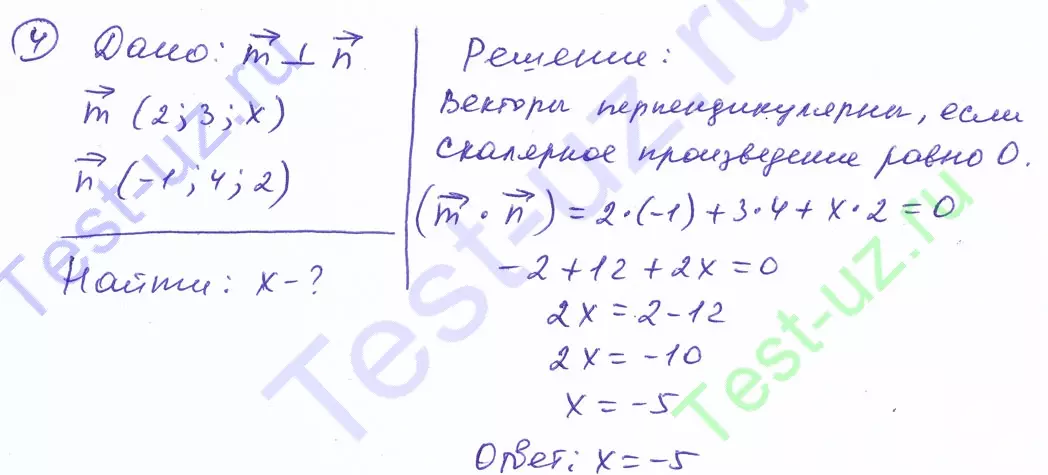 4 Дано: m⃗ ⊥ n⃗
m⃗ (2; 3; x)
n⃗ (-1; 4; 2)
Найти: x - ?
Решение:
Векторы перпендикулярны, если
скалярное произведение равно 0.
(m⃗ · n⃗) = 2·(-1) + 3·4 + x·2 = 0
-2 + 12 + 2x = 0
2x = 2 - 12
2x = -10
x = -5
Ответ: x = -5
Test-uz.ru
Test-uz.ru
Test-uz.ru